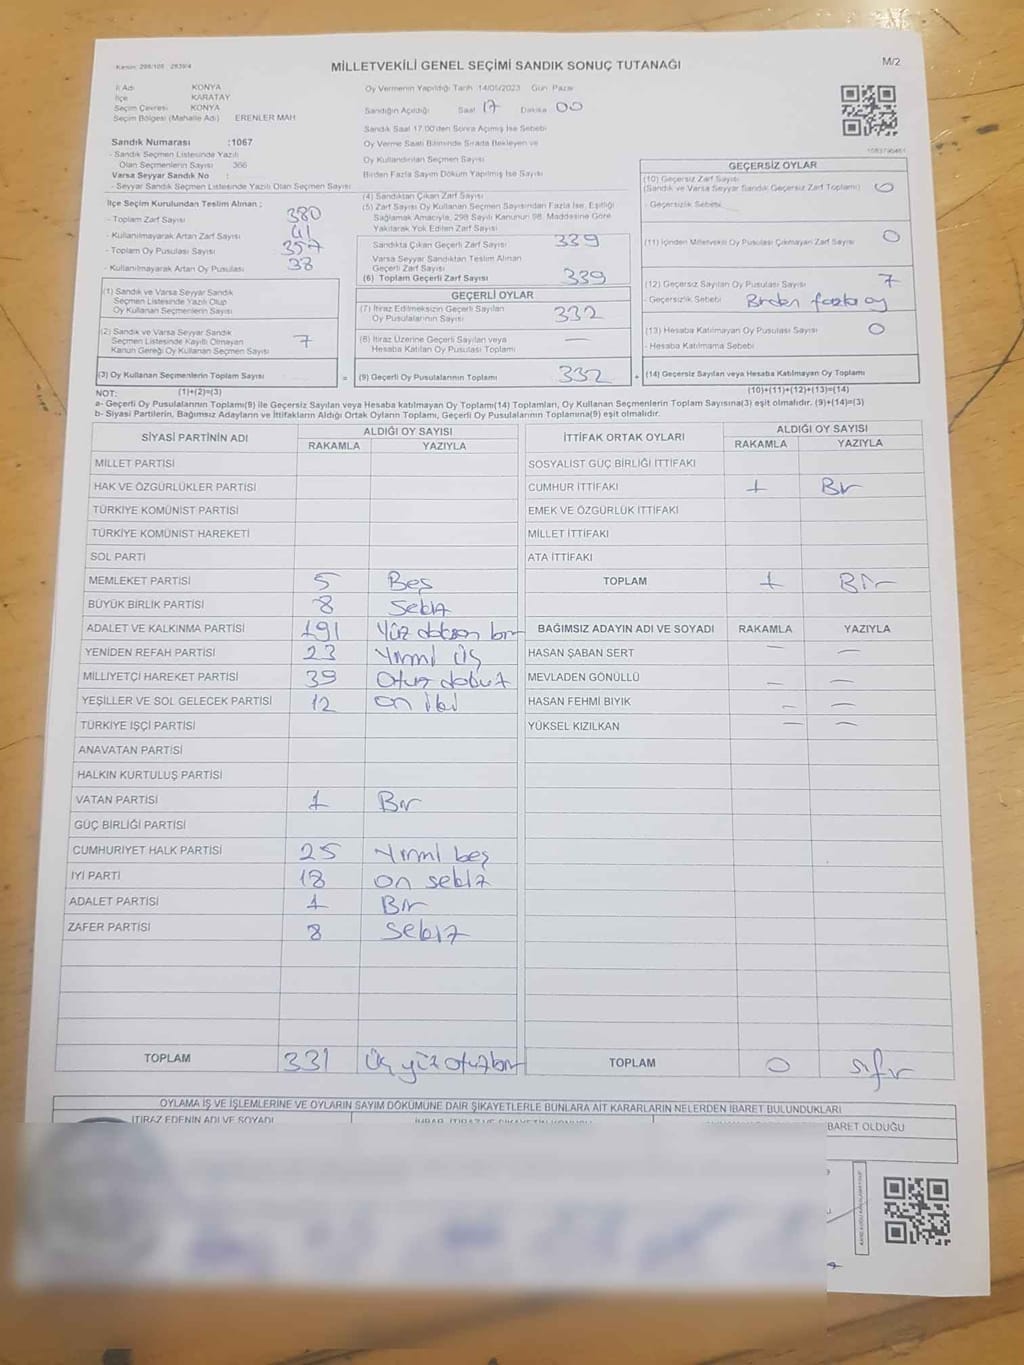 Kanun: 298/105 2839/4
MİLLETVEKİLİ GENEL SEÇİMİ SANDIK SONUÇ TUTANAĞI
M/2
İl Adı KONYA
İlçe KARATAY
Seçim Çevresi KONYA
Seçim Bölgesi (Mahalle Adı) ERENLER MAH
Sandık Numarası :1067
- Sandık Seçmen Listesinde Yazılı
Olan Seçmenlerin Sayısı 366
Varsa Seyyar Sandık No :
- Seyyar Sandık Seçmen Listesinde Yazılı Olan Seçmen Sayısı
İlçe Seçim Kurulundan Teslim Alınan ;
- Toplam Zarf Sayısı 380
- Kullanılmayarak Artan Zarf Sayısı 41
- Toplam Oy Pusulası Sayısı 357
- Kullanılmayarak Artan Oy Pusulası 38
(1) Sandık ve Varsa Seyyar Sandık
Seçmen Listesinde Yazılı Olup
Oy Kullanan Seçmenlerin Sayısı
(2) Sandık ve Varsa Seyyar Sandık
Seçmen Listesinde Kayıtlı Olmayan
Kanun Gereği Oy Kullanan Seçmen Sayısı 7
(3) Oy Kullanan Seçmenlerin Toplam Sayısı
Oy Vermenin Yapıldığı Tarih 14/05/2023 Gün Pazar
Sandığın Açıldığı Saat 17 Dakika 00
Sandık Saat 17.00'den Sonra Açılmış İse Sebebi
Oy Verme Saati Bitiminde Sırada Bekleyen ve
Oy Kullandırılan Seçmen Sayısı
Birden Fazla Sayım Döküm Yapılmış İse Sayısı
(4) Sandıktan Çıkan Zarf Sayısı
(5) Zarf Sayısı Oy Kullanan Seçmen Sayısından Fazla İse, Eşitliği
Sağlamak Amacıyla, 298 Sayılı Kanunun 98. Maddesine Göre
Yakılarak Yok Edilen Zarf Sayısı
Sandıkta Çıkan Geçerli Zarf Sayısı 339
Varsa Seyyar Sandıktan Teslim Alınan
Geçerli Zarf Sayısı
(6) Toplam Geçerli Zarf Sayısı 339
GEÇERLİ OYLAR
(7) İtiraz Edilmeksizin Geçerli Sayılan
Oy Pusulalarının Sayısı 332
(8) İtiraz Üzerine Geçerli Sayılan veya
Hesaba Katılan Oy Pusulası Toplamı —
= (9) Geçerli Oy Pusulalarının Toplamı 332
1083796461
GEÇERSİZ OYLAR
(10) Geçersiz Zarf Sayısı
(Sandık ve Varsa Seyyar Sandık Geçersiz Zarf Toplamı) 0
- Geçersizlik Sebebi
(11) İçinden Milletvekili Oy Pusulası Çıkmayan Zarf Sayısı 0
(12) Geçersiz Sayılan Oy Pusulası Sayısı 7
- Geçersizlik Sebebi Birden fazla oy
(13) Hesaba Katılmayan Oy Pusulası Sayısı 0
- Hesaba Katılmama Sebebi
+ (14) Geçersiz Sayılan veya Hesaba Katılmayan Oy Toplamı
NOT: (1)+(2)=(3) (10)+(11)+(12)+(13)=(14)
a- Geçerli Oy Pusulalarının Toplamı(9) ile Geçersiz Sayılan veya Hesaba katılmayan Oy Toplamı(14) Toplamları, Oy Kullanan Seçmenlerin Toplam Sayısına(3) eşit olmalıdır. (9)+(14)=(3)
b- Siyasi Partilerin, Bağımsız Adayların ve İttifakların Aldığı Ortak Oyların Toplamı, Geçerli Oy Pusulalarının Toplamına(9) eşit olmalıdır.
SİYASİ PARTİNİN ADI ALDIĞI OY SAYISI
RAKAMLA YAZIYLA
MİLLET PARTİSİ
HAK VE ÖZGÜRLÜKLER PARTİSİ
TÜRKİYE KOMÜNİST PARTİSİ
TÜRKİYE KOMÜNİST HAREKETİ
SOL PARTİ
MEMLEKET PARTİSİ 5 Beş
BÜYÜK BİRLİK PARTİSİ 8 Sekiz
ADALET VE KALKINMA PARTİSİ 191 Yüz doksan bir
YENİDEN REFAH PARTİSİ 23 Yirmi üç
MİLLİYETÇİ HAREKET PARTİSİ 39 Otuz dokuz
YEŞİLLER VE SOL GELECEK PARTİSİ 12 on iki
TÜRKİYE İŞÇİ PARTİSİ
ANAVATAN PARTİSİ
HALKIN KURTULUŞ PARTİSİ
VATAN PARTİSİ 1 Bir
GÜÇ BİRLİĞİ PARTİSİ
CUMHURİYET HALK PARTİSİ 25 Yirmi beş
İYİ PARTİ 18 on sekiz
ADALET PARTİSİ 1 Bir
ZAFER PARTİSİ 8 Sekiz
TOPLAM 331 üç yüz otuz bir
İTTİFAK ORTAK OYLARI ALDIĞI OY SAYISI
RAKAMLA YAZIYLA
SOSYALİST GÜÇ BİRLİĞİ İTTİFAKI
CUMHUR İTTİFAKI 1 Bir
EMEK VE ÖZGÜRLÜK İTTİFAKI
MİLLET İTTİFAKI
ATA İTTİFAKI
TOPLAM 1 Bir
BAĞIMSIZ ADAYIN ADI VE SOYADI RAKAMLA YAZIYLA
HASAN ŞABAN SERT — —
MEVLADEN GÖNÜLLÜ — —
HASAN FEHMİ BIYIK — —
YÜKSEL KIZILKAN — —
TOPLAM 0 sıfır
OYLAMA İŞ VE İŞLEMLERİNE VE OYLARIN SAYIM DÖKÜMÜNE DAİR ŞİKAYETLERLE BUNLARA AİT KARARLARIN NELERDEN İBARET BULUNDUKLARI
İTİRAZ EDENİN ADI VE SOYADI
İBARET OLDUĞU